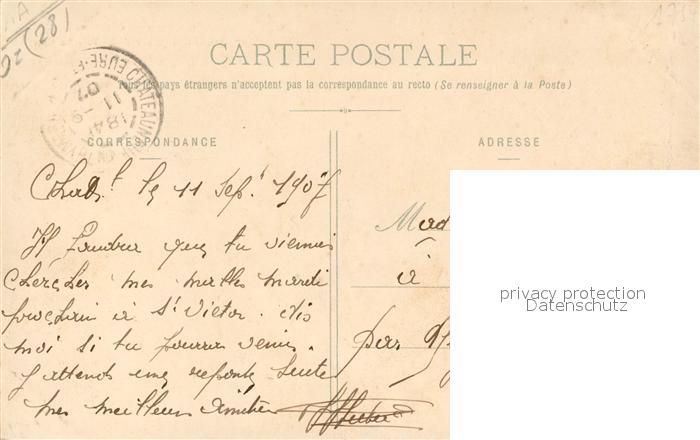 Dz (28)
CARTE POSTALE
Tous les pays étrangers n'acceptent pas la correspondance au recto (Se renseigner à la Poste)
CHATEAUNEUF EURE-ET
11
07
CORRESPONDANCE
ADRESSE
le 11 Sep.t 1907
Il faudra que tu viennes
chercher mes malles mardi
prochain à St Victor. dis
moi si tu pourras venir.
J'attends une réponse toutes
mes meilleures Amitiés
Mad
à
par
privacy protection
Datenschutz